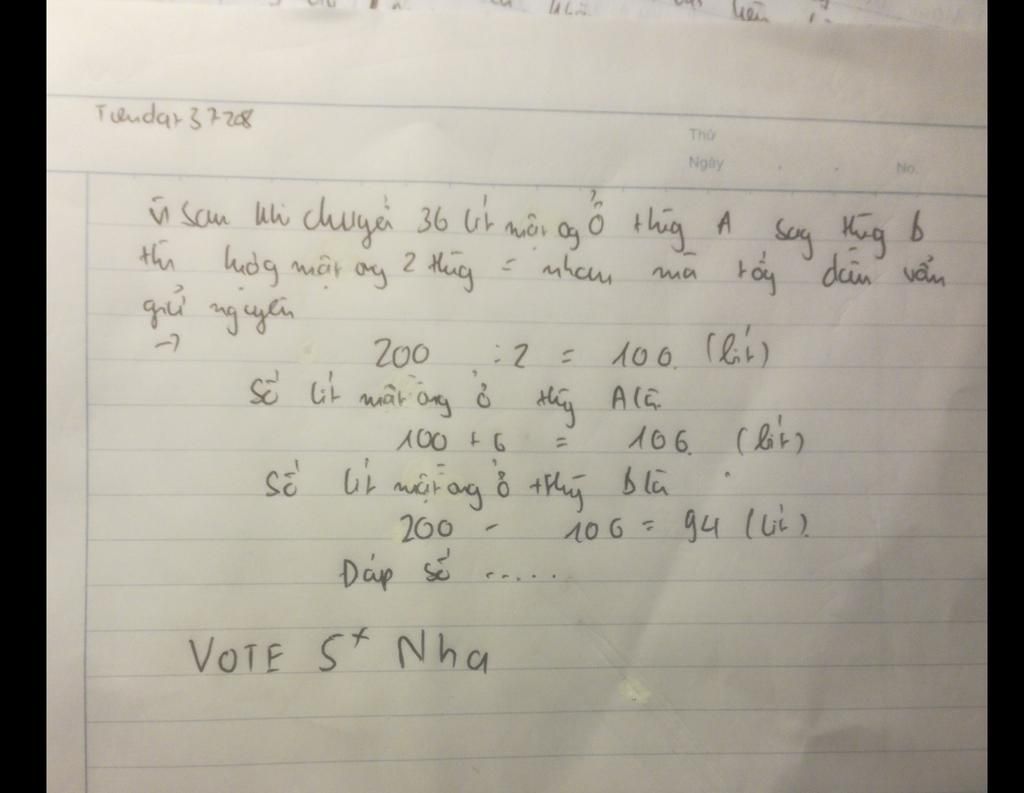 Tiendat37208
Thứ
Ngày
No.
Vì sau khi chuyển 36 lít mật og ở thùg A sag thùg b
thì lượg mật og 2 thùg = nhau mà tổg dầu vẫn
giữ nguyên
→ 200 : 2 = 100. (lít)
Số lít mật ong ở thùg A là
100 + 6 = 106. (lít)
Số lít mật ong ở thùg b là
200 - 106 = 94 (lít).
Đáp số .....
VOTE 5* Nha